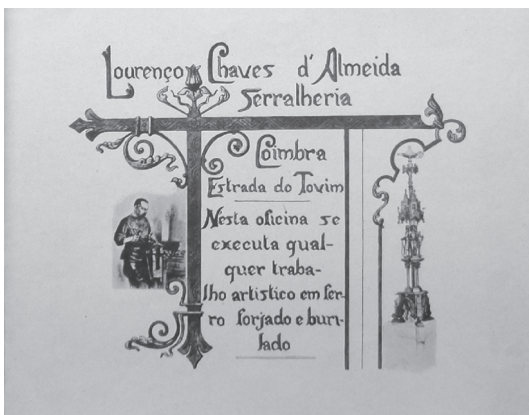 Lourenço Chaves d'Almeida
Serralheria
Coimbra
Estrada do Tovim
Nesta oficina se
executa qual-
quer traba-
lho artistico em fer-
ro forjado e buri-
lado